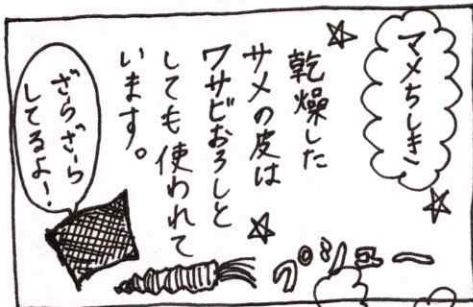 マメちしき
乾燥した
サメの皮は
ワサビおろしと
しても使われて
います。
ざらざーら
してるよ!